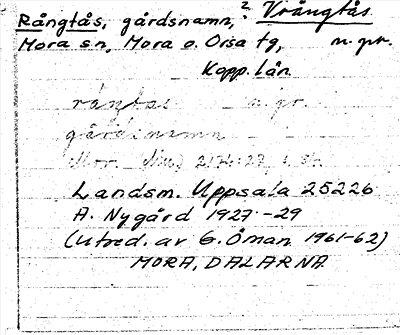 Rångtås, gårdsnamn, ? Vrångtås
Mora sn, Mora o. Orsa tg, n. pr.
Kopp. län
n. pr.
gårdsnamn
Landsm. Uppsala 25226
A. Nygård 1927-29
(Utred. av G. Öman 1961-62)
MORA, DALARNA